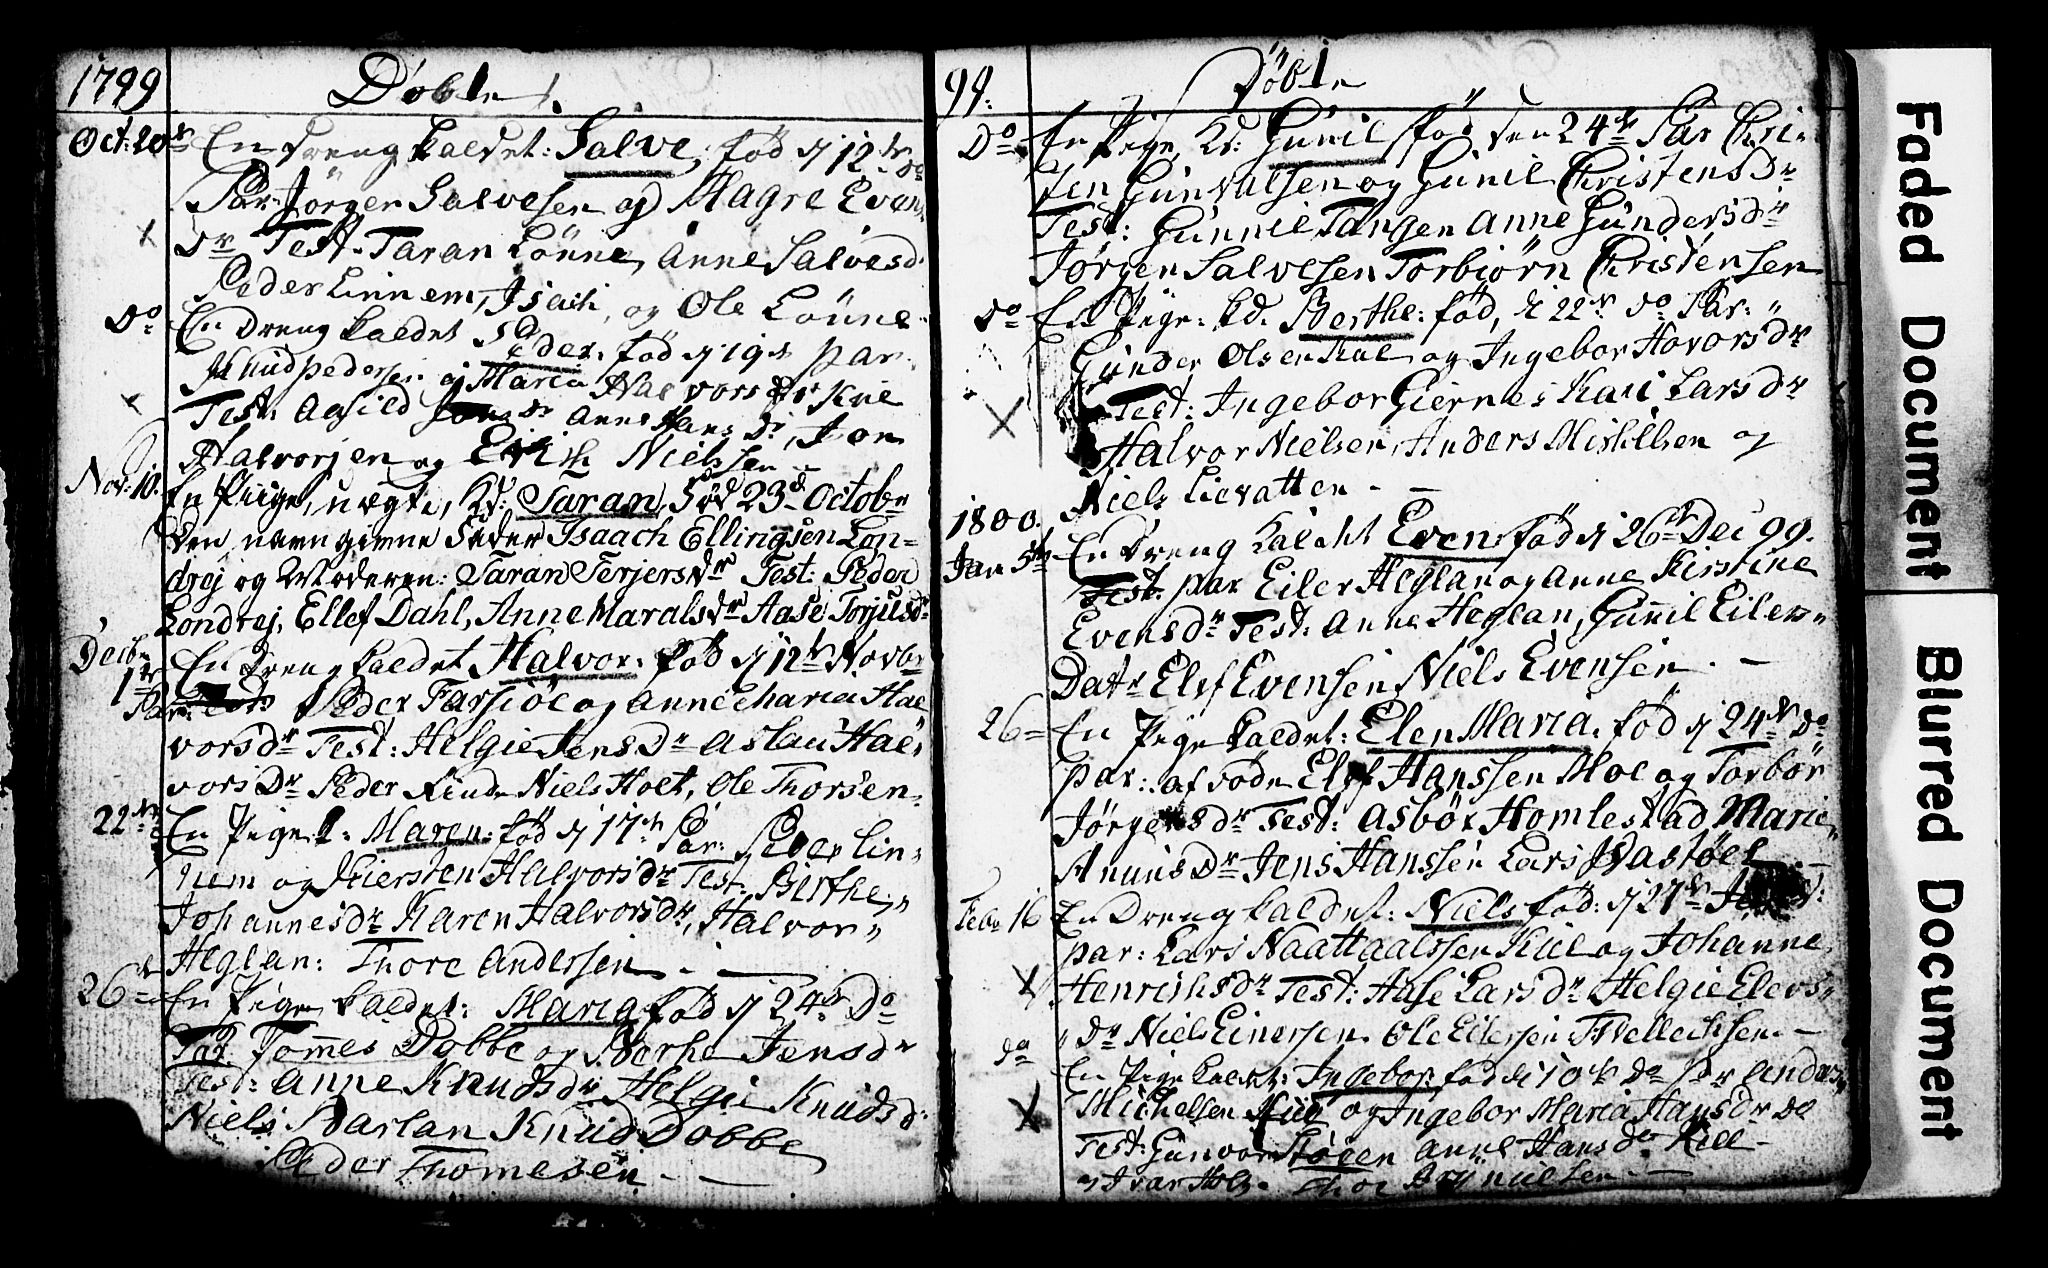 1799 Döbte
Oct: 20de En Dreng kaldet: Salve, föd d 12te do
Par. Jörgen Salvesen og Magre Evens
Dr Test. Taran Lönne, Anne Salvesd.
Peder Linnem, Isach, og Ole Lönne
Do En Dreng kaldet Peder. föd d 19de par.
Knud pedersen og Maria Halvorsdr Kiil
Test. Aasild Anne Hans Dr, Jon
Halvorsen og Erich Nielssen
Nov: 10. En Piige, uægte, Kd: Taran, Föd 23de Octobr
Den navngivne Fader Isaach Ellingsen Lon=
drej og Moderen: Taran Terjersdr Test: Peder
Londrej, Ellef Dahl, Anne Maralsdr Aase Torjusdr
Decbr En Dreng kaldet Halvor. föd d 12te Novbr
1te Par: Peder Farsiöe og Anne Maria Hal
vorsdr Test: Helgie Jens Dr Aslau Hal,,
vors Dr Peder Lind Niels Holt, Ole Thorsen.
22de En Pige k: Maren: föd d 17de Par: Peder Lin,,
nem og Kiersten Halvorsdr Test. Birthe,,
Johannesdr Karen Halvorsdr, Halvor,,
Heglan: Thore Andersen
26de En Pige kaldet: Maria föd d 24de Do
Par Tommes Dobbe og Berhe Jensdr
Test: Anne Knudsdr Helgie Knudsd:
Niels Barlan Knud Dobbe
Peder Thomesen
99: Döbte
Do En Pige Kd: Gunil föd den 24de Par Chri=
sten Gunvalsen og Gunil Christensdr
Test: Gunnil Tangen Anne Gundersdr
Jörgen Salvesen Torbiörn Christensen
do En Pige: kd. Berthe: föd, d 22de do Par:
Gunder Olsen Kiil og Ingebor Hovorsdr
Test: Ingebor Giernes Kari Larsdr
Halvor Nielsen, Anders Mikkelsen og
Niels Lievatten
1800.
Jan 5te En Dreng kaldet Even föd d 26de Dec 99.
Test. par Eiler Heglan og Anne Kirstine
Evensdr Test: Anna Heglan, Gunnil Eilers,,
Datr Elef Evensen Niels Evensen
26= En Pige kaldet: Elen Maria. föd d 24de Do
par: af söde Elef Hanssen Moe og Torbör
Jörgensdr Test: Asbör Homlestad Marie
Anunsdr Jens Hanssen Lars Vastöel
Febr 16 En Dreng kaldet: Niels föd: d 27de
par: Lars Naattaalssen Kiil og Johanne
Henrichsdr Test: Aase Larsdr Helgie Elevs,,
,,dr Niels Einersen. Ole Eilersen Tvellechsen.
do En Pige kaldet: Ingebor föd d 10de do par Anders
Michelsen Kiil og Ingebor Maria Hansdr de
Test: Gunvor Stöeen Anne Hansdr Kiil
Ivar Holt. Thor Brynielsen
Faded Document
Blurred Document